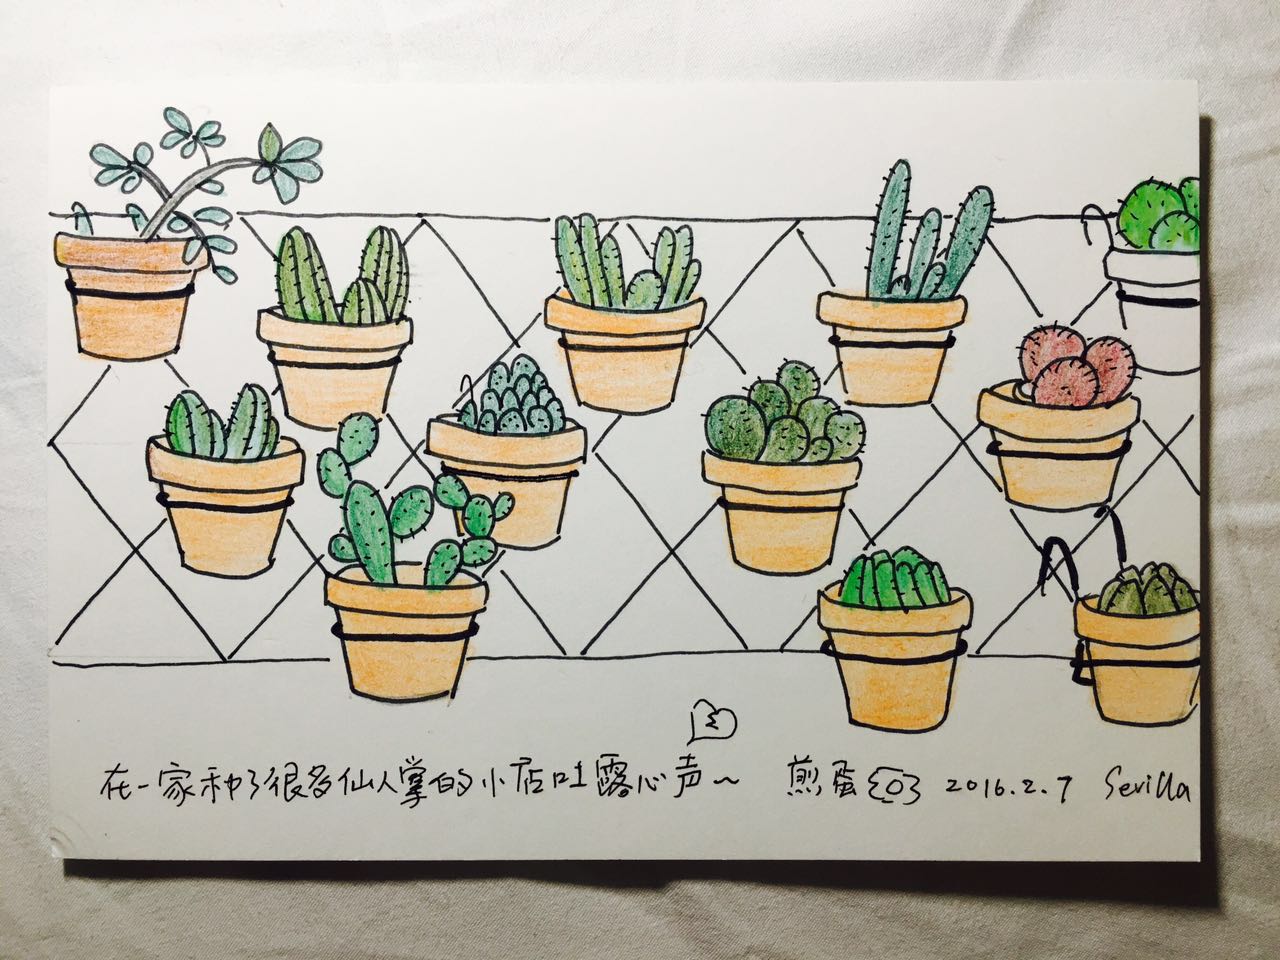 在一家种了很多仙人掌的小店吐露心声～ 煎蛋 2016.2.7 Sevilla